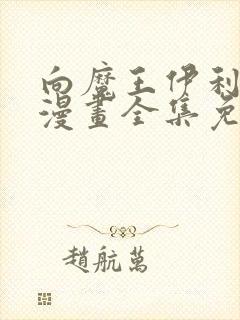 向魔王伊利
漫畫全集免
趙航萬